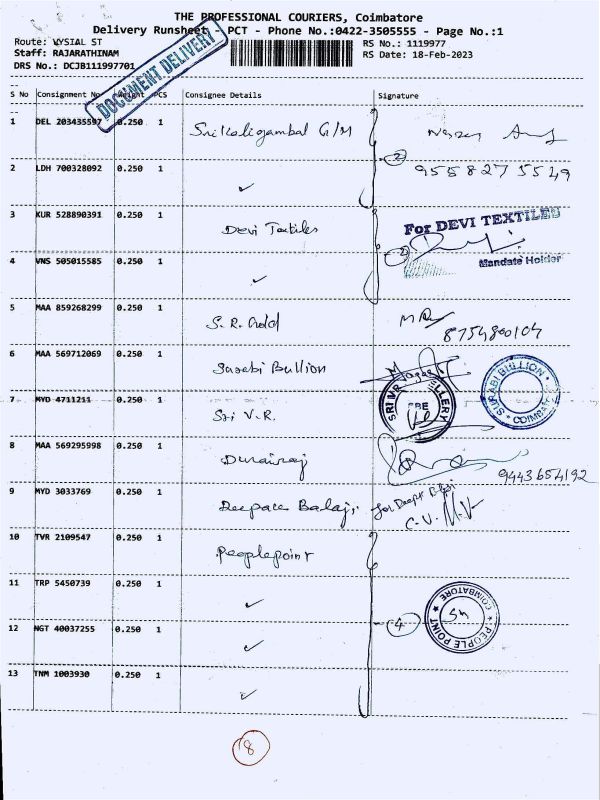 THE PROFESSIONAL COURIERS, Coimbatore
Delivery Runsheet - PCT - Phone No.:0422-3505555 - Page No.:1
Route: VYSIAL ST
RS No.: 1119977
Staff: RAJARATHINAM
RS Date: 18-Feb-2023
DRS No.: DCJB111997701
DOCUMENT DELIVERY
S No Consignment No Weight PCS Consignee Details Signature
1 DEL 203435597 0.250 1 Srikaligambal G/M
2
2 LDH 700328092 0.250 1 ✓ 9558275549
3 KUR 528890391 0.250 1 Devi Textiles For DEVI TEXTILES
2
4 VNS 505015585 0.250 1 ✓ Mandate Holder
5 MAA 859268299 0.250 1 S.R. Gold 8754800104
6 MAA 569712069 0.250 1 Surabi Bullion SURABI BULLION * COIMBATORE
7 MYD 4711211 0.250 1 Sri V.R. SRI VR JEWELLERY CBE
8 MAA 569295998 0.250 1 Durairaj 9443654192
9 MYD 3033769 0.250 1 Deepace Balaji for Deepa Balaji
10 TVR 2109547 0.250 1 Peoplepoint
11 TRP 5450739 0.250 1 ✓
12 NGT 40037255 0.250 1 ✓ 4 PEOPLE POINT * COIMBATORE *
13 TNM 1003930 0.250 1 ✓
8